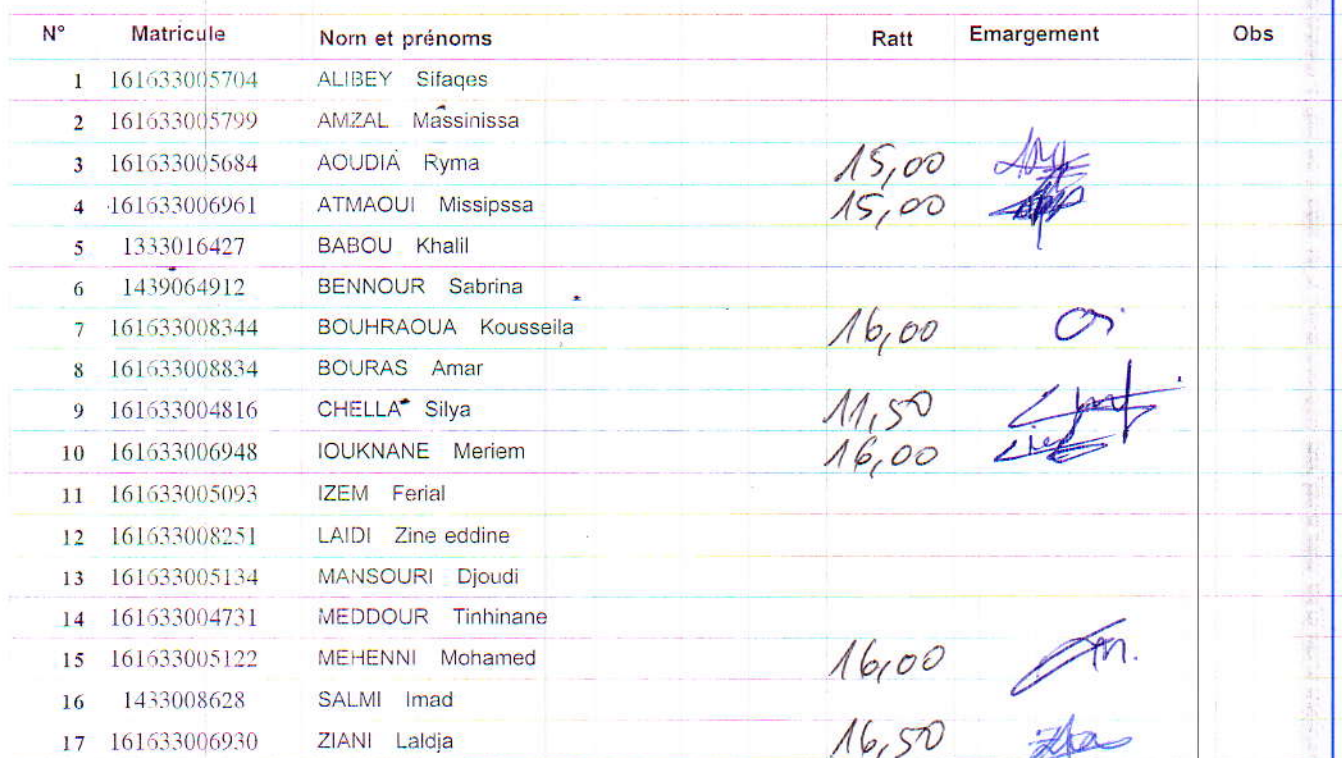 N° Matricule Nom et prénoms Ratt Emargement Obs
1 161633005704 ALIBEY Sifaqes
2 161633005799 AMZAL Massinissa
3 161633005684 AOUDIA Ryma 15,00
4 161633006961 ATMAOUI Missipssa 15,00
5 1333016427 BABOU Khalil
6 1439064912 BENNOUR Sabrina
7 161633008344 BOUHRAOUA Kousseila 16,00
8 161633008834 BOURAS Amar
9 161633004816 CHELLA Silya 11,50
10 161633006948 IOUKNANE Meriem 16,00
11 161633005093 IZEM Ferial
12 161633008251 LAIDI Zine eddine
13 161633005134 MANSOURI Djoudi
14 161633004731 MEDDOUR Tinhinane
15 161633005122 MEHENNI Mohamed 16,00
16 1433008628 SALMI Imad
17 161633006930 ZIANI Laldja 16,50